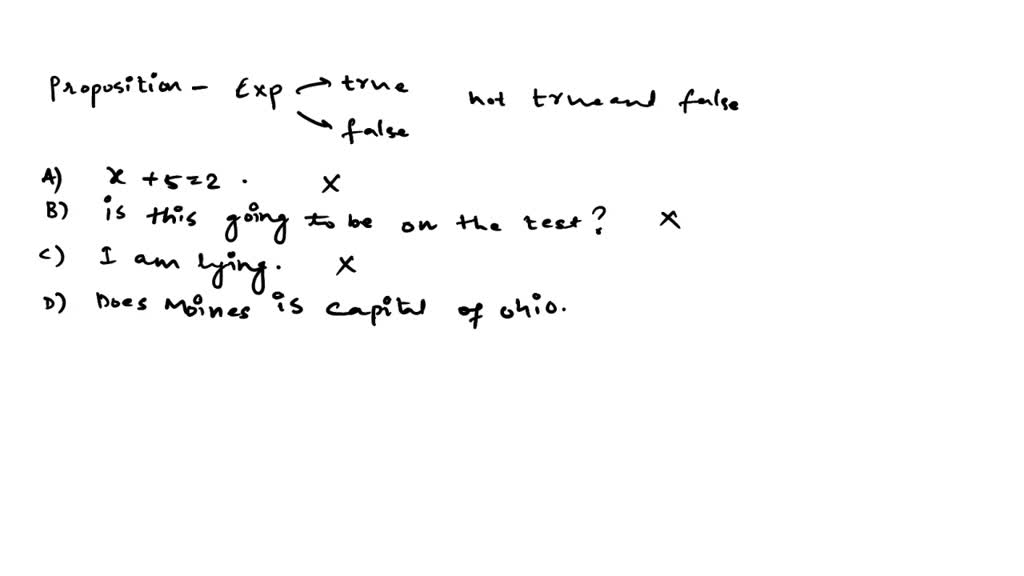 Proposition - Exp → true not true and false
→ false
A) x + 5 = 2 . X
B) is this going to be on the test? X
C) I am lying. X
D) Does Moines is capital of ohio.